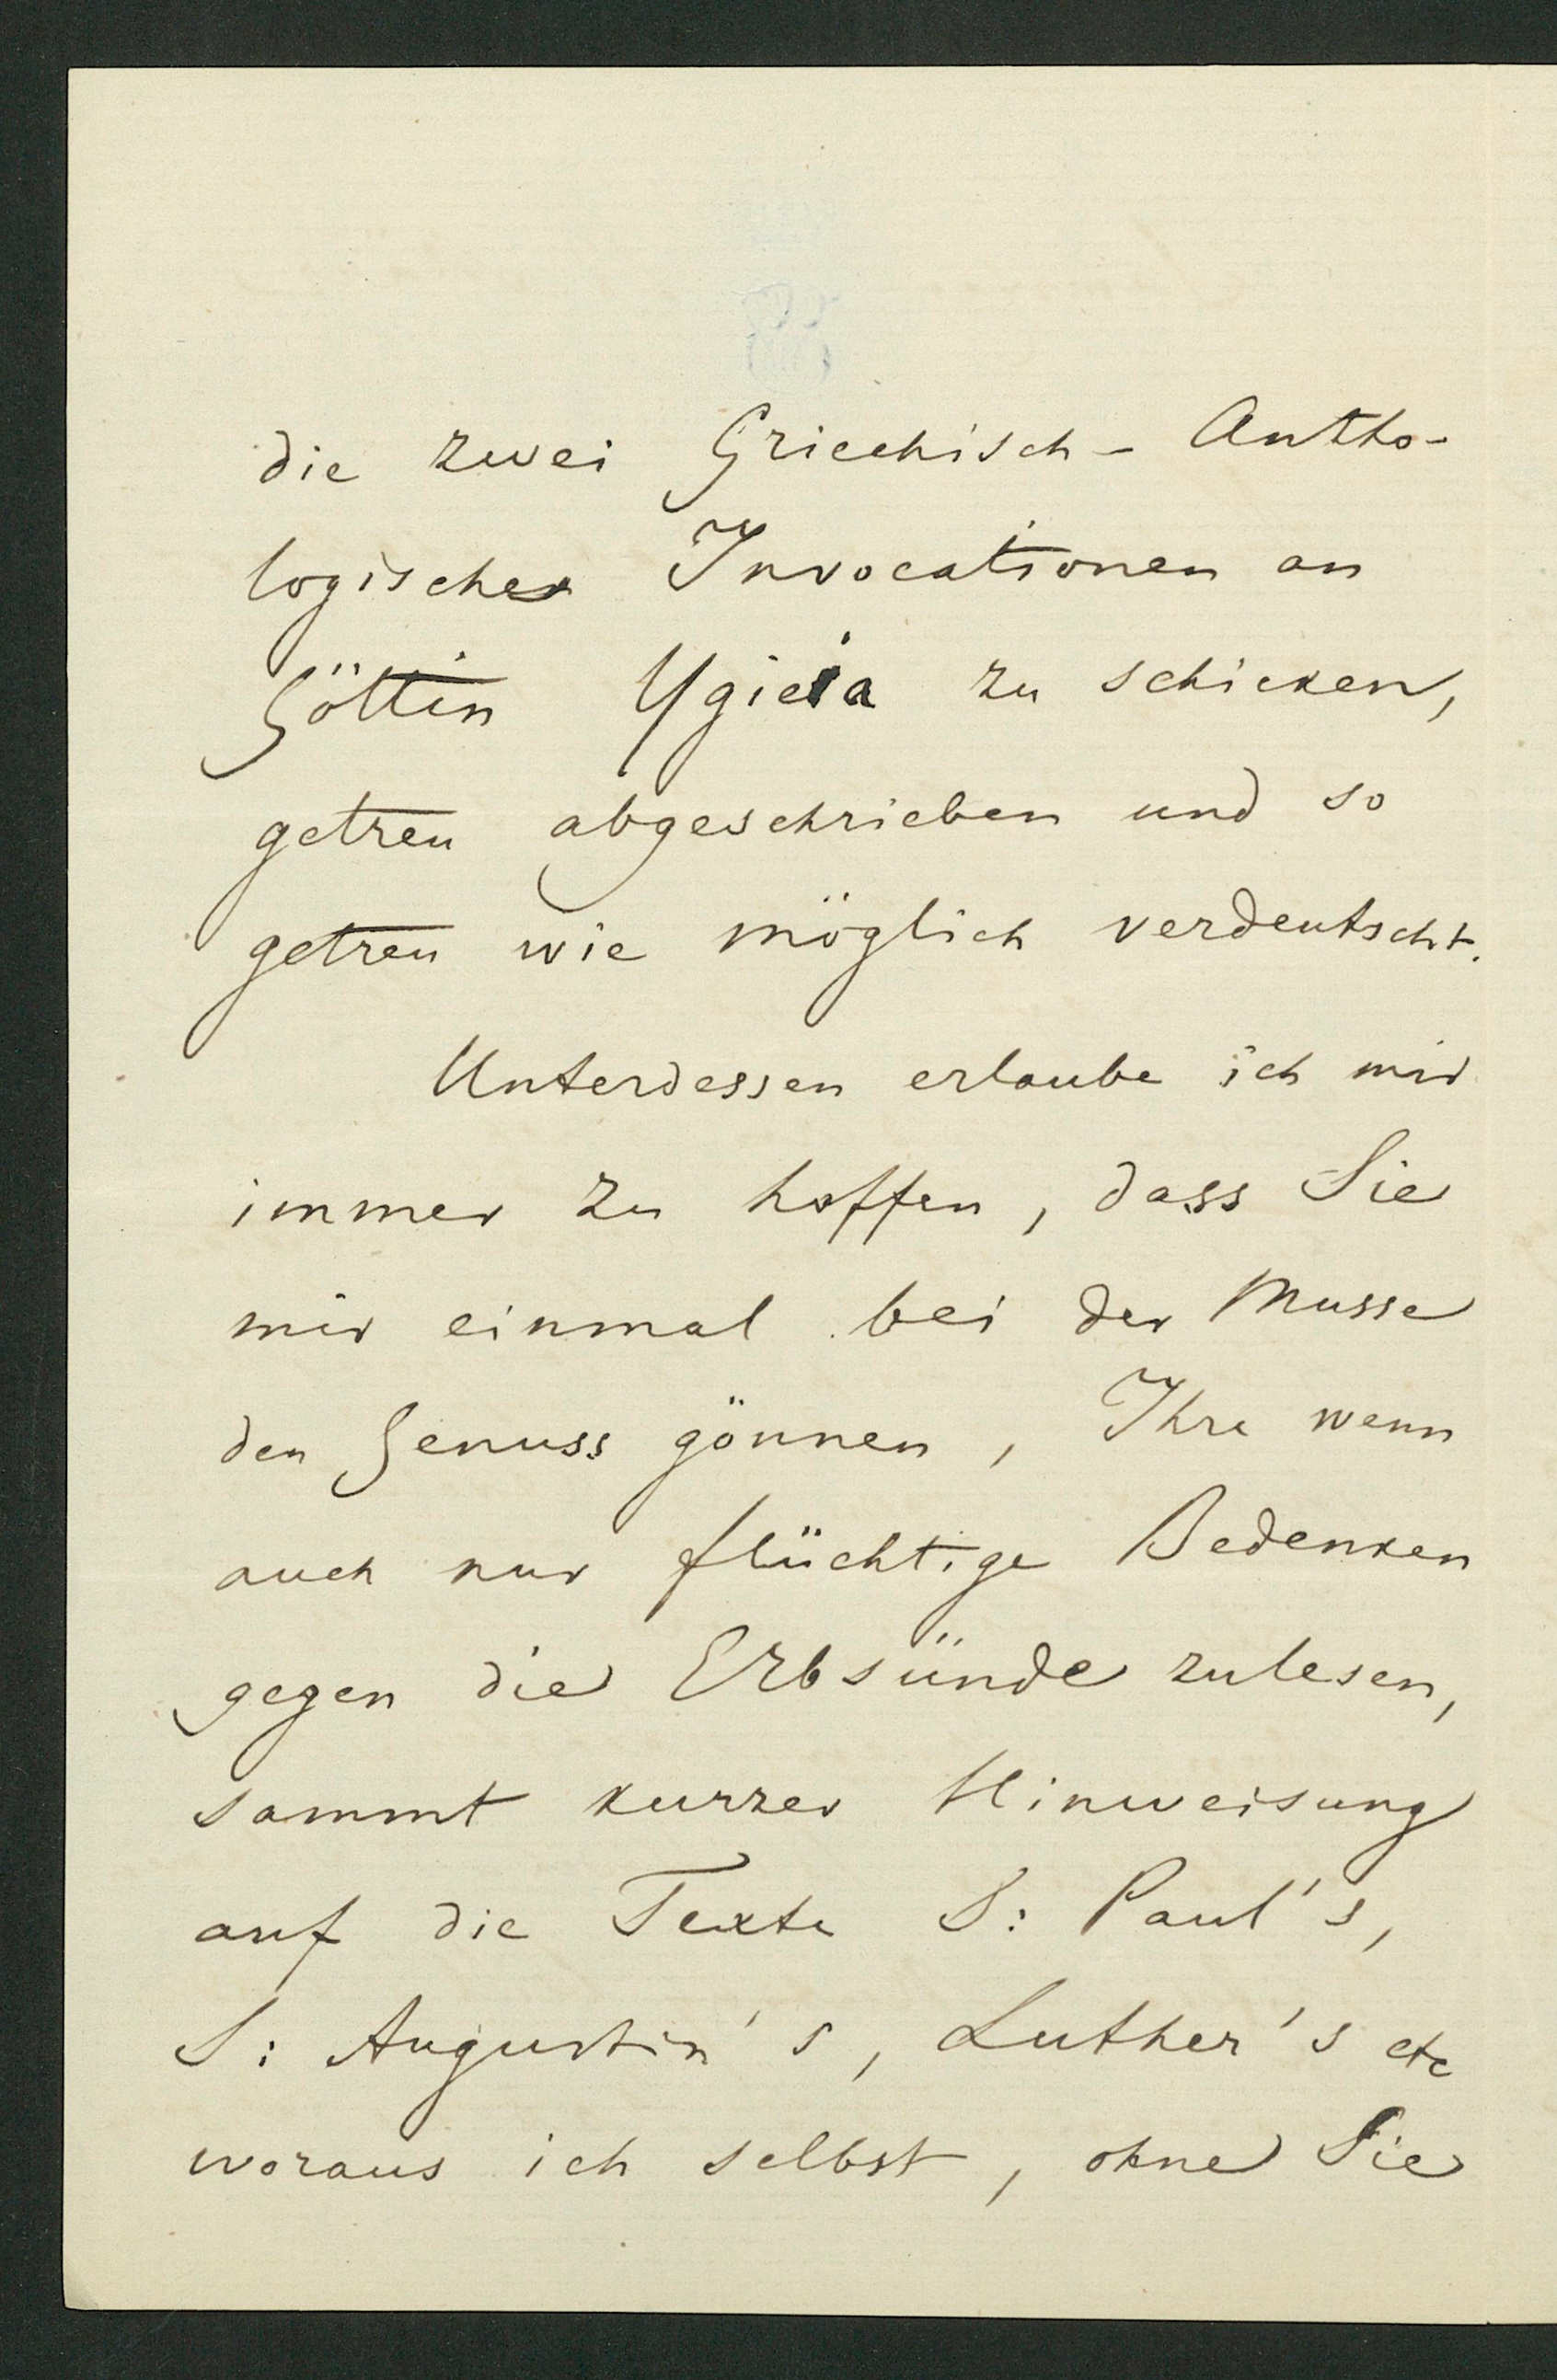 die zwei Griechisch-Antho-
logischen Invocationen an
Göttin Ygieia zu schicken,
getreu abgeschrieben und so
getreu wie möglich verdeutscht.
Unterdessen erlaube ich mir
immer zu hoffen, dass Sie
mir einmal bei der Musse
den Genuss gönnen, Ihre wenn
auch nur flüchtige Bedenken
gegen die Erbsünde zulesen,
sammt kurzer Hinweisung
auf die Texte S: Paul's,
S: Augustin's, Luther's etc
woraus ich selbst, ohne Sie